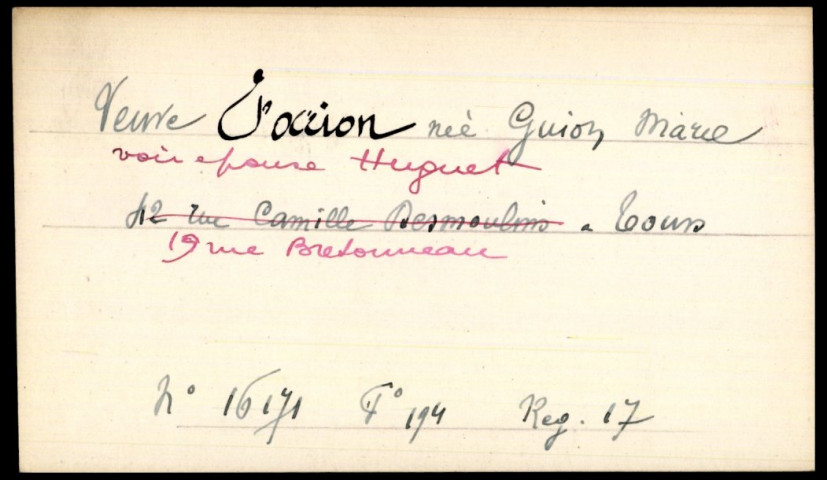 Veuve née Guion Marie
voir epouse Huguet
42 rue Camille Desmoulins a Tours
19 rue Bretonneau
N° 16171 F° 194 Reg. 17